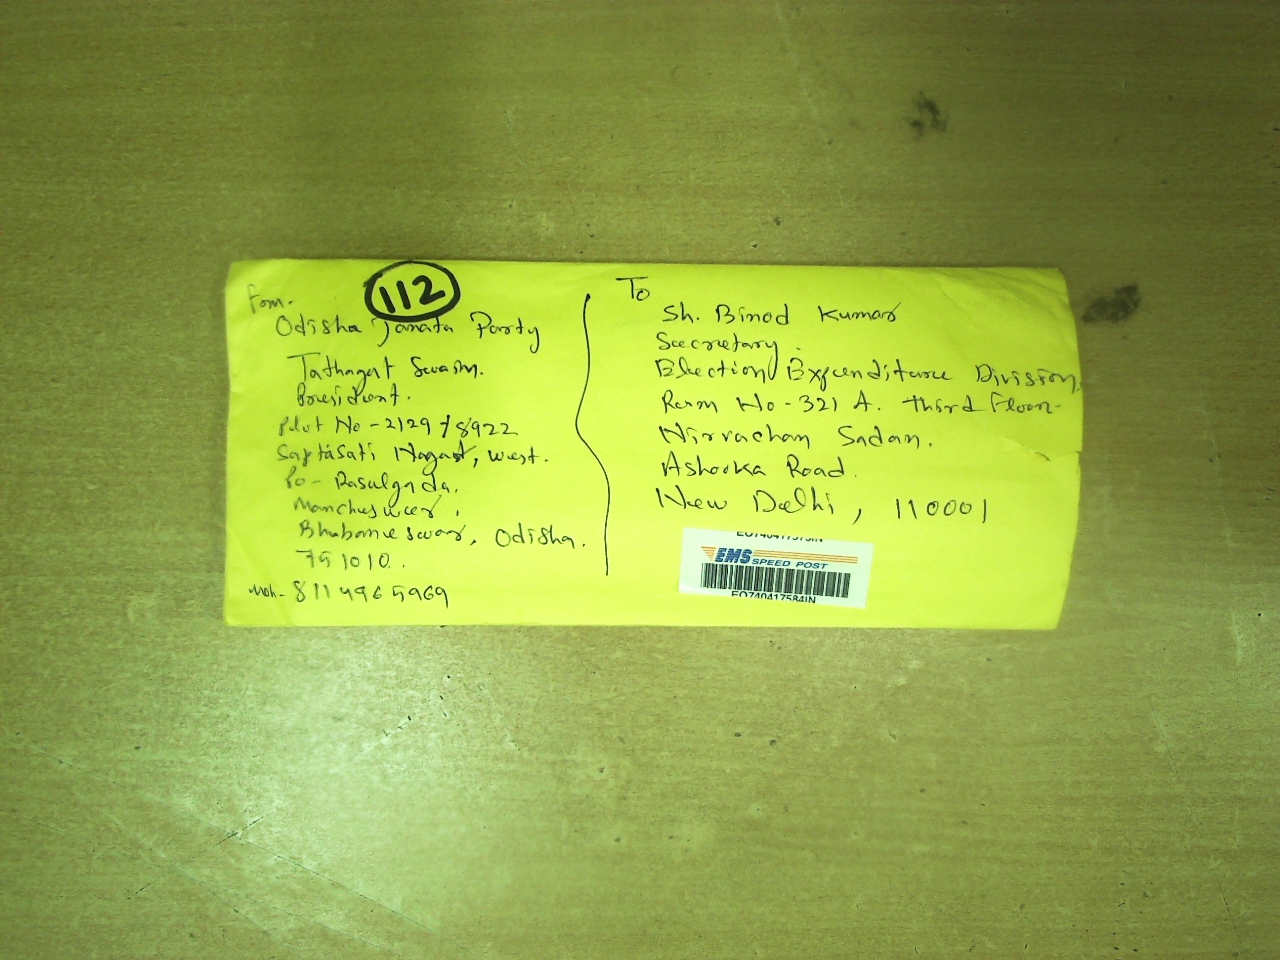 From.
112
Odisha Janata Party
Tathagat Swain.
President.
Plot No - 2129/8922
Saptasati Nagar, West.
Po - Rasulgada,
Mancheswer,
Bhubaneswar, Odisha.
751010.
Mob - 8114965969
To
Sh. Binod Kumar
Secretary.
Election Expenditure Division,
Room No - 321 A. third Floor.
Nirvachan Sadan.
Ashoka Road.
New Delhi, 110001
EO740417575IN
EMS SPEED POST
EO740417584IN